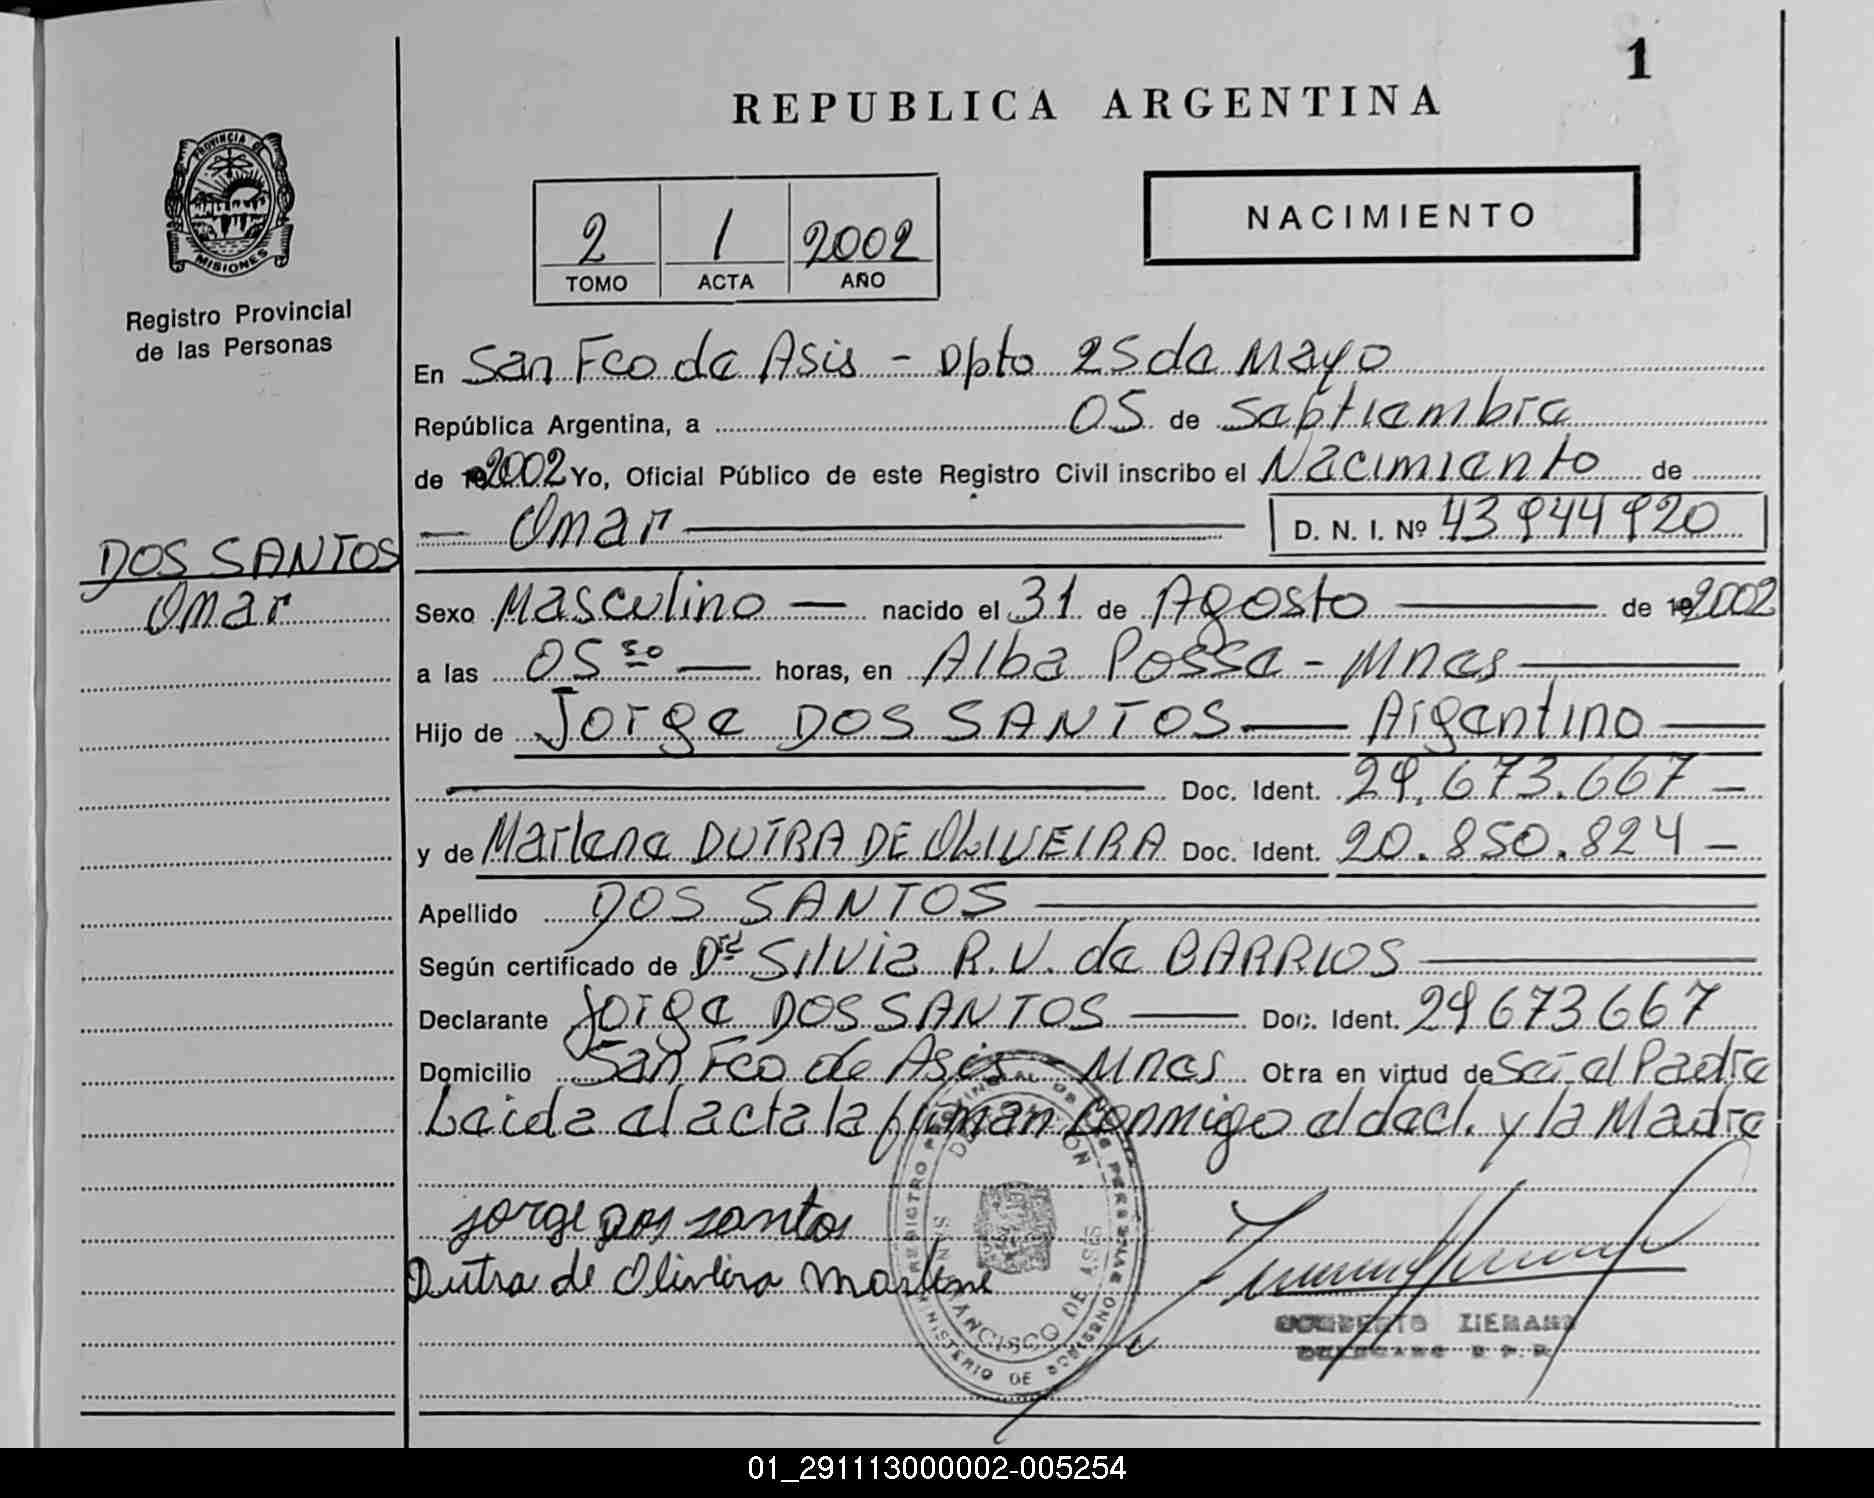 1
REPUBLICA ARGENTINA
PROVINCIA DE
MISIONES
Registro Provincial
de las Personas
2 1 2002
TOMO ACTA AÑO
NACIMIENTO
En San Fco de Asis - Dpto 25 de Mayo
República Argentina, a 05 de Septiembre
de 2002 Yo, Oficial Público de este Registro Civil inscribo el Nacimiento de
Omar D. N. I. Nº 43944920
DOS SANTOS
Omar
Sexo Masculino nacido el 31 de Agosto de 2002
a las 05 50 horas, en Alba Posse - Mnes
Hijo de Jorge DOS SANTOS Argentino
Doc. Ident. 29.673.667
y de Marlene DUTRA DE OLIVEIRA Doc. Ident. 20.850.824
Apellido DOS SANTOS
Según certificado de Dra Silvia R. V. de BARRIOS
Declarante Jorge DOS SANTOS Doc. Ident. 29673667
Domicilio San Fco de Asis Mnes Otra en virtud de Sei el Padre
Leida el acta la firman conmigo el decl. y la Madre
jorge dos santos
Dutra de Oliveira Marlene
REGISTRO PROVINCIAL DE LAS PERSONAS
MINISTERIO DE GOBIERNO
DELEGACION
SAN FRANCISCO DE ASIS
01_291113000002-005254